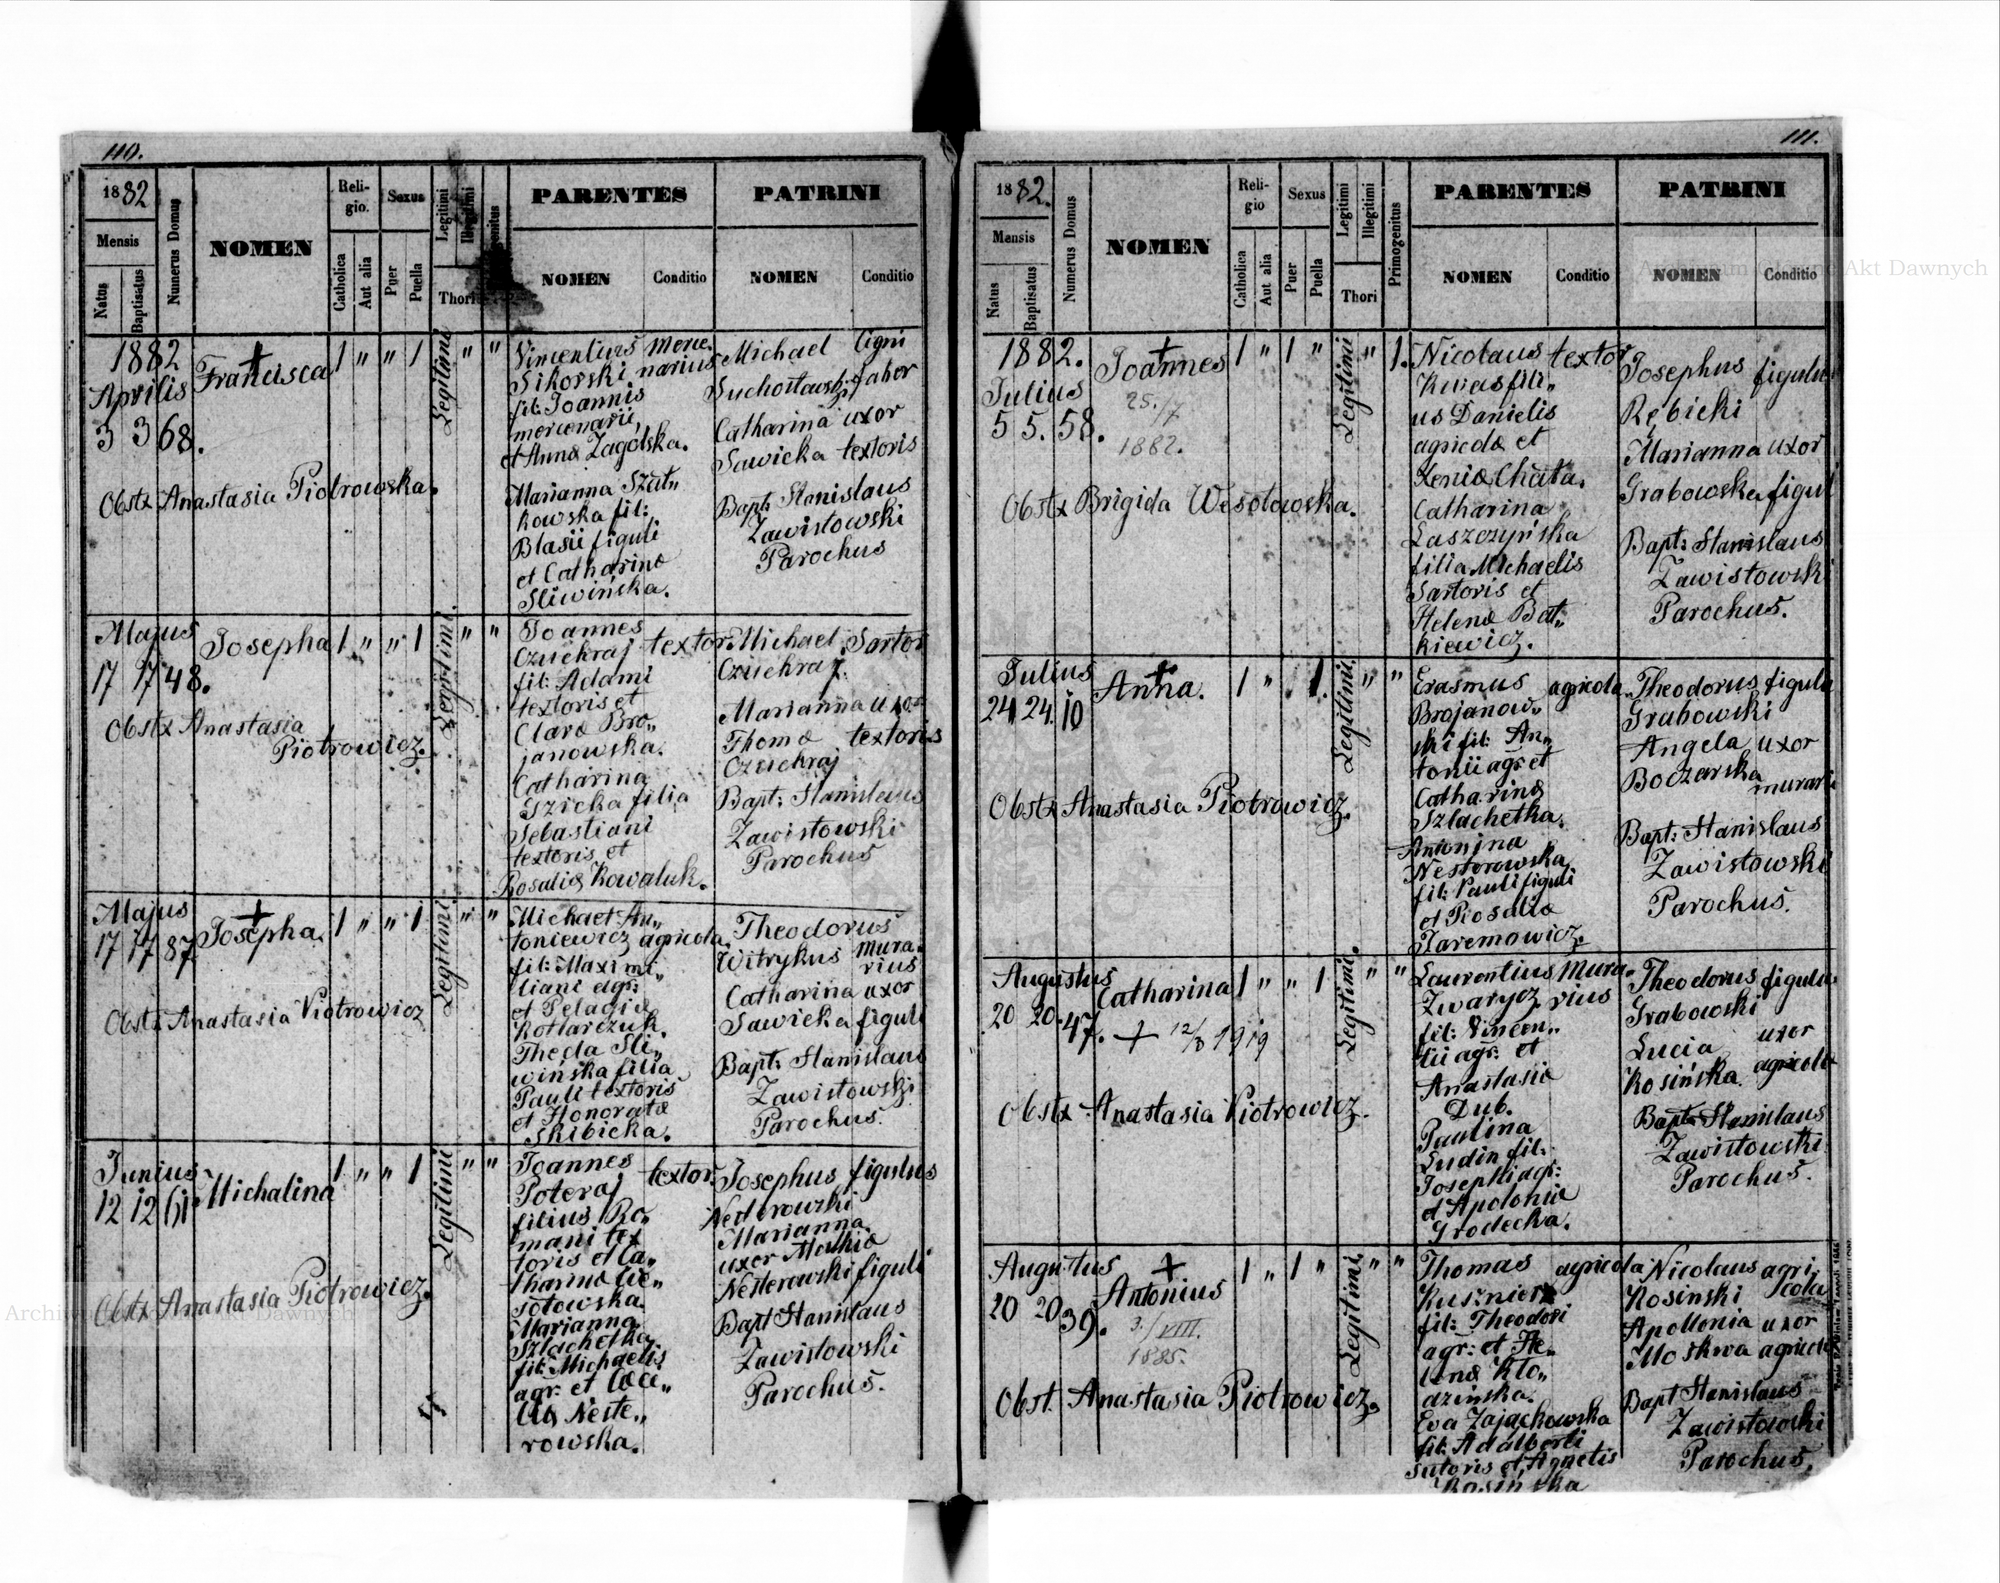 110.
1882
Mensis
Natus
Baptisatus
Numerus Domus
NOMEN
Reli-
gio.
Catholica
Aut alia
Sexus
Puer
Puella
Legitimi
Illegitimi
Thori
PARENTES
NOMEN Conditio
PATRINI
NOMEN Conditio
1882
Aprilis
3 3 68.
Francisca
1 " " 1
Legitimi
" "
Obstx Anastasia Piotrowska.
Vincentius merce
Sikorski narius
fil: Joannis
mercenarii,
et Annæ Zagolska.
Marianna Szat„
kowska fil:
Blasii figuli
et Catharinæ
Sliwińska.
Michael ligni
Suchostawski faber
Catharina uxor
Sawicka textoris
Bapt: Stanislaus
Zawistowski
Parochus
Majus
17 17 48.
Josepha
1 " " 1
Legitimi.
" "
Obstx Anastasia
Piotrowicz.
Joannes
Czuchraj textor.
fil: Adami
textoris et
Claræ Bro„
janowska.
Catharina
Gzicka filia
Sebastiani
textoris et
Rosaliæ Kowaluk.
Michael Sartor
Czuchraj.
Marianna uxor
Thomæ textoris
Czuchraj
Bapt: Stanislaus
Zawistowski
Parochus
Majus
17 17 87
Josepha.
1 " " 1
Legitimi
" "
Obstx Anastasia Piotrowicz
Michael An„
toniewicz agricola.
fil: Maximi„
liani agr:
et Pelagiæ
Kotlarczuk.
Thecla Sli„
wińska filia
Pauli textoris
et Honoratæ
Skibicka.
Theodorus
Witrykus mura„
rius
Catharina uxor
Sawicka figuli
Bapt: Stanislaus
Zawistowski
Parochus.
Junius
12 12 61
Michalina
1 " " 1
Legitimi
" "
Obstx Anastasia Piotrowicz.
Joannes
Poteraj textor.
filius Ro„
mani tex
toris et Ca„
tharinæ Cie„
Marianna
Szlachetka
fil: Michaelis
agr: et Cæci„
liæ Neste„
rowska.
Josephus figulus
Nesterowski
Marianna
uxor
Nesterowski figuli
Bapt Stanislaus
Zawistowski
Parochus.
111.
1882.
Mensis
Natus
Baptisatus
Numerus Domus
NOMEN
Reli-
gio
Catholica
Aut alia
Sexus
Puer
Puella
Legitimi
Illegitimi
Thori
Primogenitus
PARENTES
NOMEN Conditio
PATRINI
NOMEN Conditio
1882.
Julius
5 5. 58.
Joannes
25./7
1882.
1 " 1 "
Legitimi
" 1.
Obstx Brigida Wesołowska.
Nicolaus textor
Kwas fili„
us Danielis
agricolæ et
Xeniæ Chata.
Catharina
Laszczyńska
filia Michaelis
Sartoris et
Helenæ Bat„
kiewicz.
Josephus figulus
Rębicki
Marianna uxor
Grabowska figuli
Bapt: Stanislaus
Zawistowski
Parochus.
Julius
24 24. 10
Anna.
1 " 1.
Legitimi.
" "
Obstx Anastasia Piotrowicz.
Erasmus agricola.
Brojanow„
ski fil: An„
tonii agr: et
Catharinæ
Szlachetka.
Antonina
Nesterowska
fil: Pauli figuli
et Rosaliæ
Jaremowicz.
Theodorus figulus
Grabowski
Angela uxor
Boczarska murarii
Bapt: Stanislaus
Zawistowski
Parochus.
Augustus
20 20. 47.
Catharina
+ 12/3 1919
1 " " 1
Legitimi.
" "
Obstx Anastasia Piotrowicz.
Laurentius Mura„
Zwarycz rius
fil: Vincen„
tii agr: et
Anastasiæ
Dub.
Paulina
Ludin fil:
Josephi agr:
et Apoloniæ
Grodecka.
Theodorus figulus
Grabowski
Lucia uxor
Kosińska agricolæ
Bapt: Stanislaus
Zawistowski
Parochus.
Augustus
20 20 39.
Antonius
3./VIII.
1885.
1 " 1 "
Legitimi
" "
Obst. Anastasia Piotrowicz.
Thomas agricola
Kusznierz
fil: Theodori
agr: et He„
lenæ Kło„
dzińska.
Eva Zajączkowska
fil: Adalberti
sutoris et Agnetis
Rosińska
Nicolaus agri„
Kosinski cola
Apollonia uxor
Moskwa agricolæ
Bapt Stanislaus
Zawistowski
Parochus.